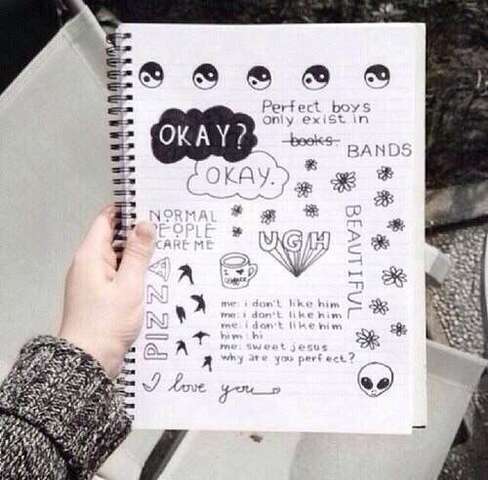 Perfect boys
only exist in
books.
BANDS
OKAY?
OKAY.
NORMAL
PEOPLE
SCARE ME
UGH
BEAUTIFUL
PIZZA
me: i don't like him
me: i don't like him
me: i don't like him
him: hi
me: sweet jesus
why are you perfect?
I love you